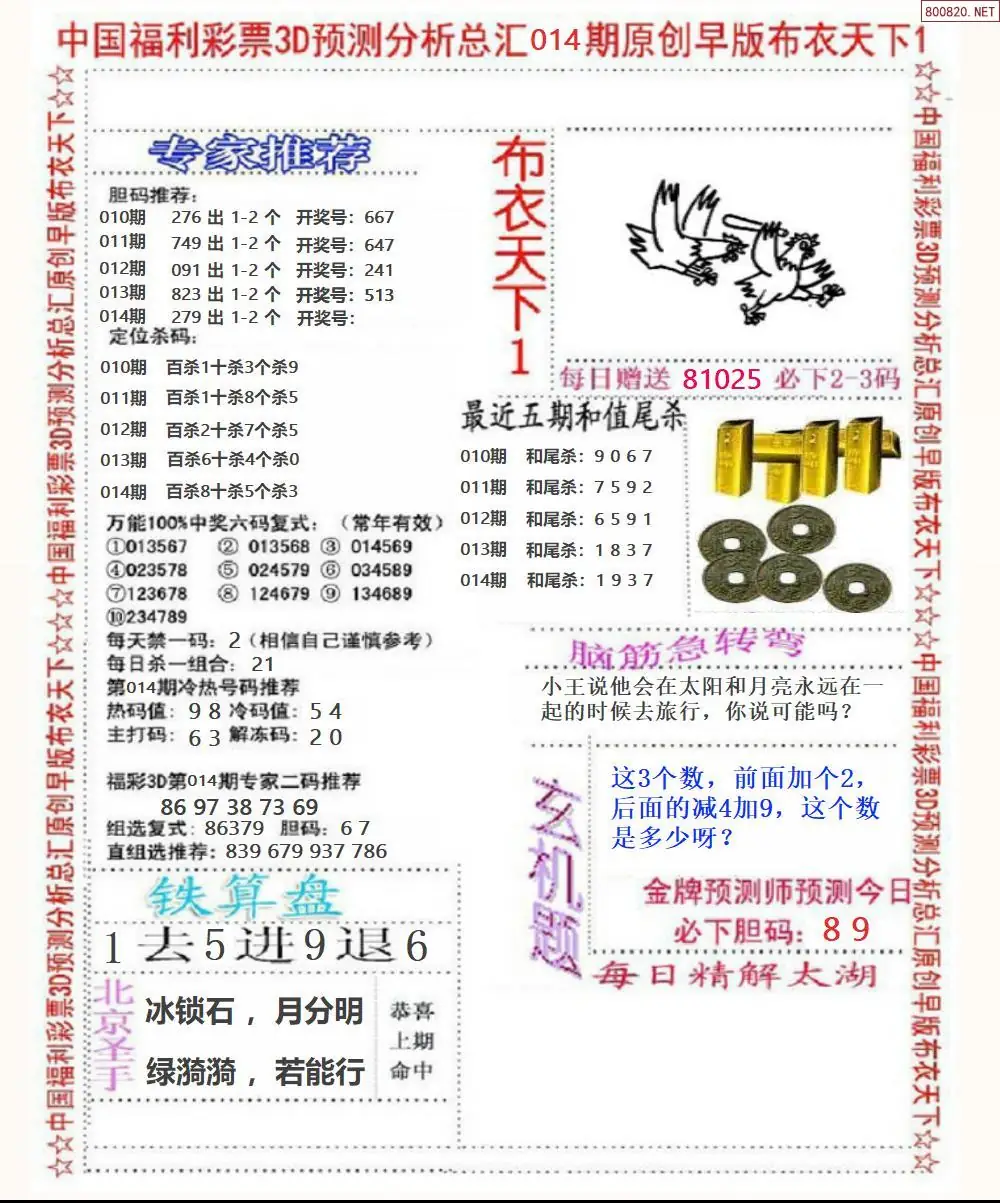 800820.NET
中国福利彩票3D预测分析总汇014期原创早版布衣天下1
☆☆中国福利彩票3D预测分析总汇原创早版布衣天下☆☆中国福利彩票3D预测分析总汇原创早版布衣天下☆☆
专家推荐
胆码推荐:
010期 276 出 1-2 个 开奖号: 667
011期 749 出 1-2 个 开奖号: 647
012期 091 出 1-2 个 开奖号: 241
013期 823 出 1-2 个 开奖号: 513
014期 279 出 1-2 个 开奖号:
定位杀码:
010期 百杀1十杀3个杀9
011期 百杀1十杀8个杀5
012期 百杀2十杀7个杀5
013期 百杀6十杀4个杀0
014期 百杀8十杀5个杀3
万能100%中奖六码复式: (常年有效)
①013567 ② 013568 ③ 014569
④023578 ⑤ 024579 ⑥ 034589
⑦123678 ⑧ 124679 ⑨ 134689
⑩234789
每天禁一码: 2(相信自己谨慎参考)
每日杀一组合: 21
第014期冷热号码推荐
热码值: 9 8 冷码值: 5 4
主打码: 6 3 解冻码: 2 0
福彩3D第014期专家二码推荐
86 97 38 73 69
组选复式: 86379 胆码: 6 7
直组选推荐: 839 679 937 786
铁算盘
1去5进9退6
北京圣手
冰锁石，月分明
绿漪漪，若能行
恭喜
上期
命中
布衣天下1
每日赠送 81025 必下2-3码
最近五期和值尾杀
010期 和尾杀: 9 0 6 7
011期 和尾杀: 7 5 9 2
012期 和尾杀: 6 5 9 1
013期 和尾杀: 1 8 3 7
014期 和尾杀: 1 9 3 7
脑筋急转弯
小王说他会在太阳和月亮永远在一
起的时候去旅行，你说可能吗?
玄机题
这3个数，前面加个2，
后面的减4加9，这个数
是多少呀?
金牌预测师预测今日
必下胆码: 8 9
每日精解太湖
☆☆中国福利彩票3D预测分析总汇原创早版布衣天下☆☆中国福利彩票3D预测分析总汇原创早版布衣天下☆☆